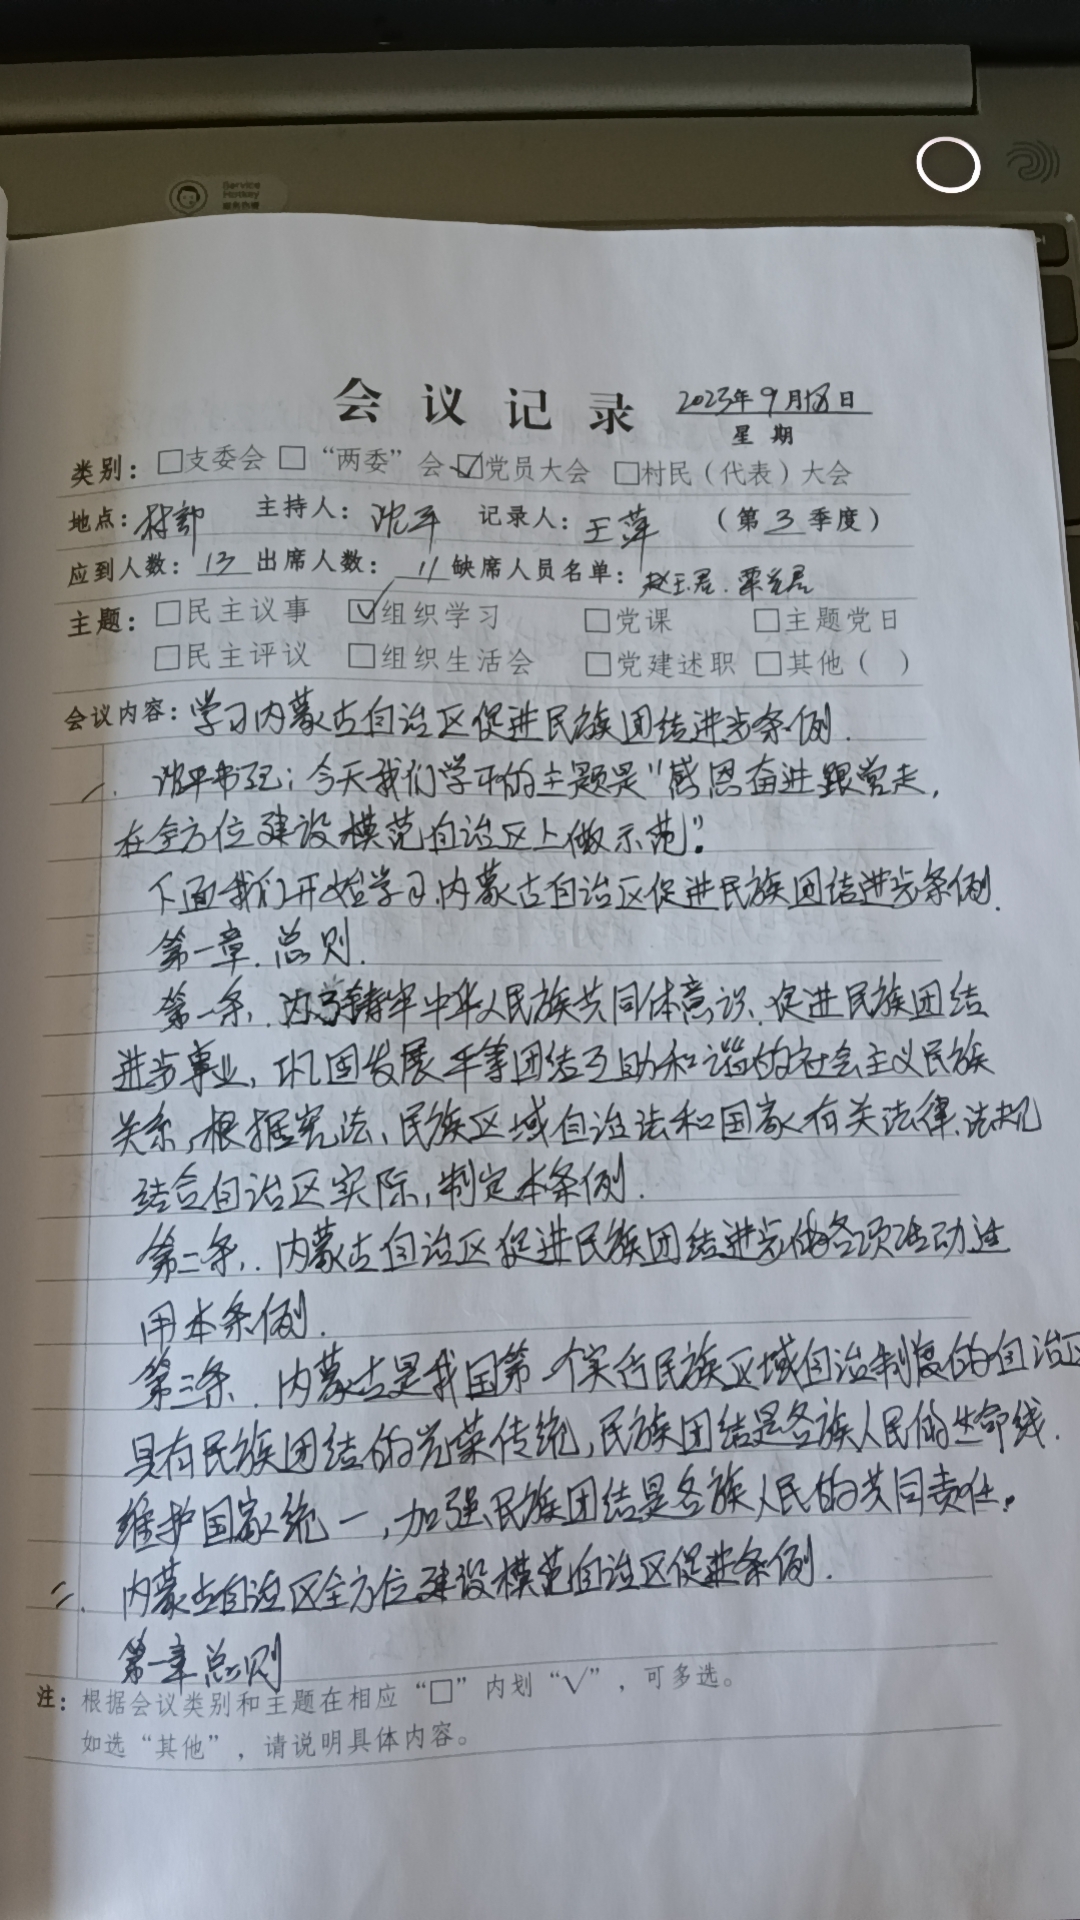 Service
Hotkey
服务热键
会议记录 2023年9月18日
星期
类别：□支委会 □“两委”会 ☑党员大会 □村民（代表）大会
地点：村部 主持人：沈平 记录人：王萍 （第3季度）
应到人数：13 出席人数：11 缺席人员名单：赵玉君.
主题：□民主议事 ☑组织学习 □党课 □主题党日
□民主评议 □组织生活会 □党建述职 □其他（ ）
会议内容：学习内蒙古自治区促进民族团结进步条例.
一. 沈平书记：今天我们学习的主题是“感恩奋进跟党走，
在全方位建设模范自治区上做示范”。
下面我们开始学习内蒙古自治区促进民族团结进步条例.
第一章. 总则.
第一条. 为铸牢中华人民族共同体意识、促进民族团结
进步事业，巩固发展平等团结互助和谐的社会主义民族
关系，根据宪法、民族区域自治法和国家有关法律、法规
结合自治区实际，制定本条例.
第二条. 内蒙古自治区促进民族团结进步的各项活动适
用本条例.
第三条. 内蒙古是我国第一个实行民族区域自治制度的自治区
具有民族团结的光荣传统，民族团结是各族人民的生命线.
维护国家统一，加强民族团结是各族人民的共同责任。
二. 内蒙古自治区全方位建设模范自治区促进条例.
第一章总则
注：根据会议类别和主题在相应“□”内划“√”，可多选。
如选“其他”，请说明具体内容。